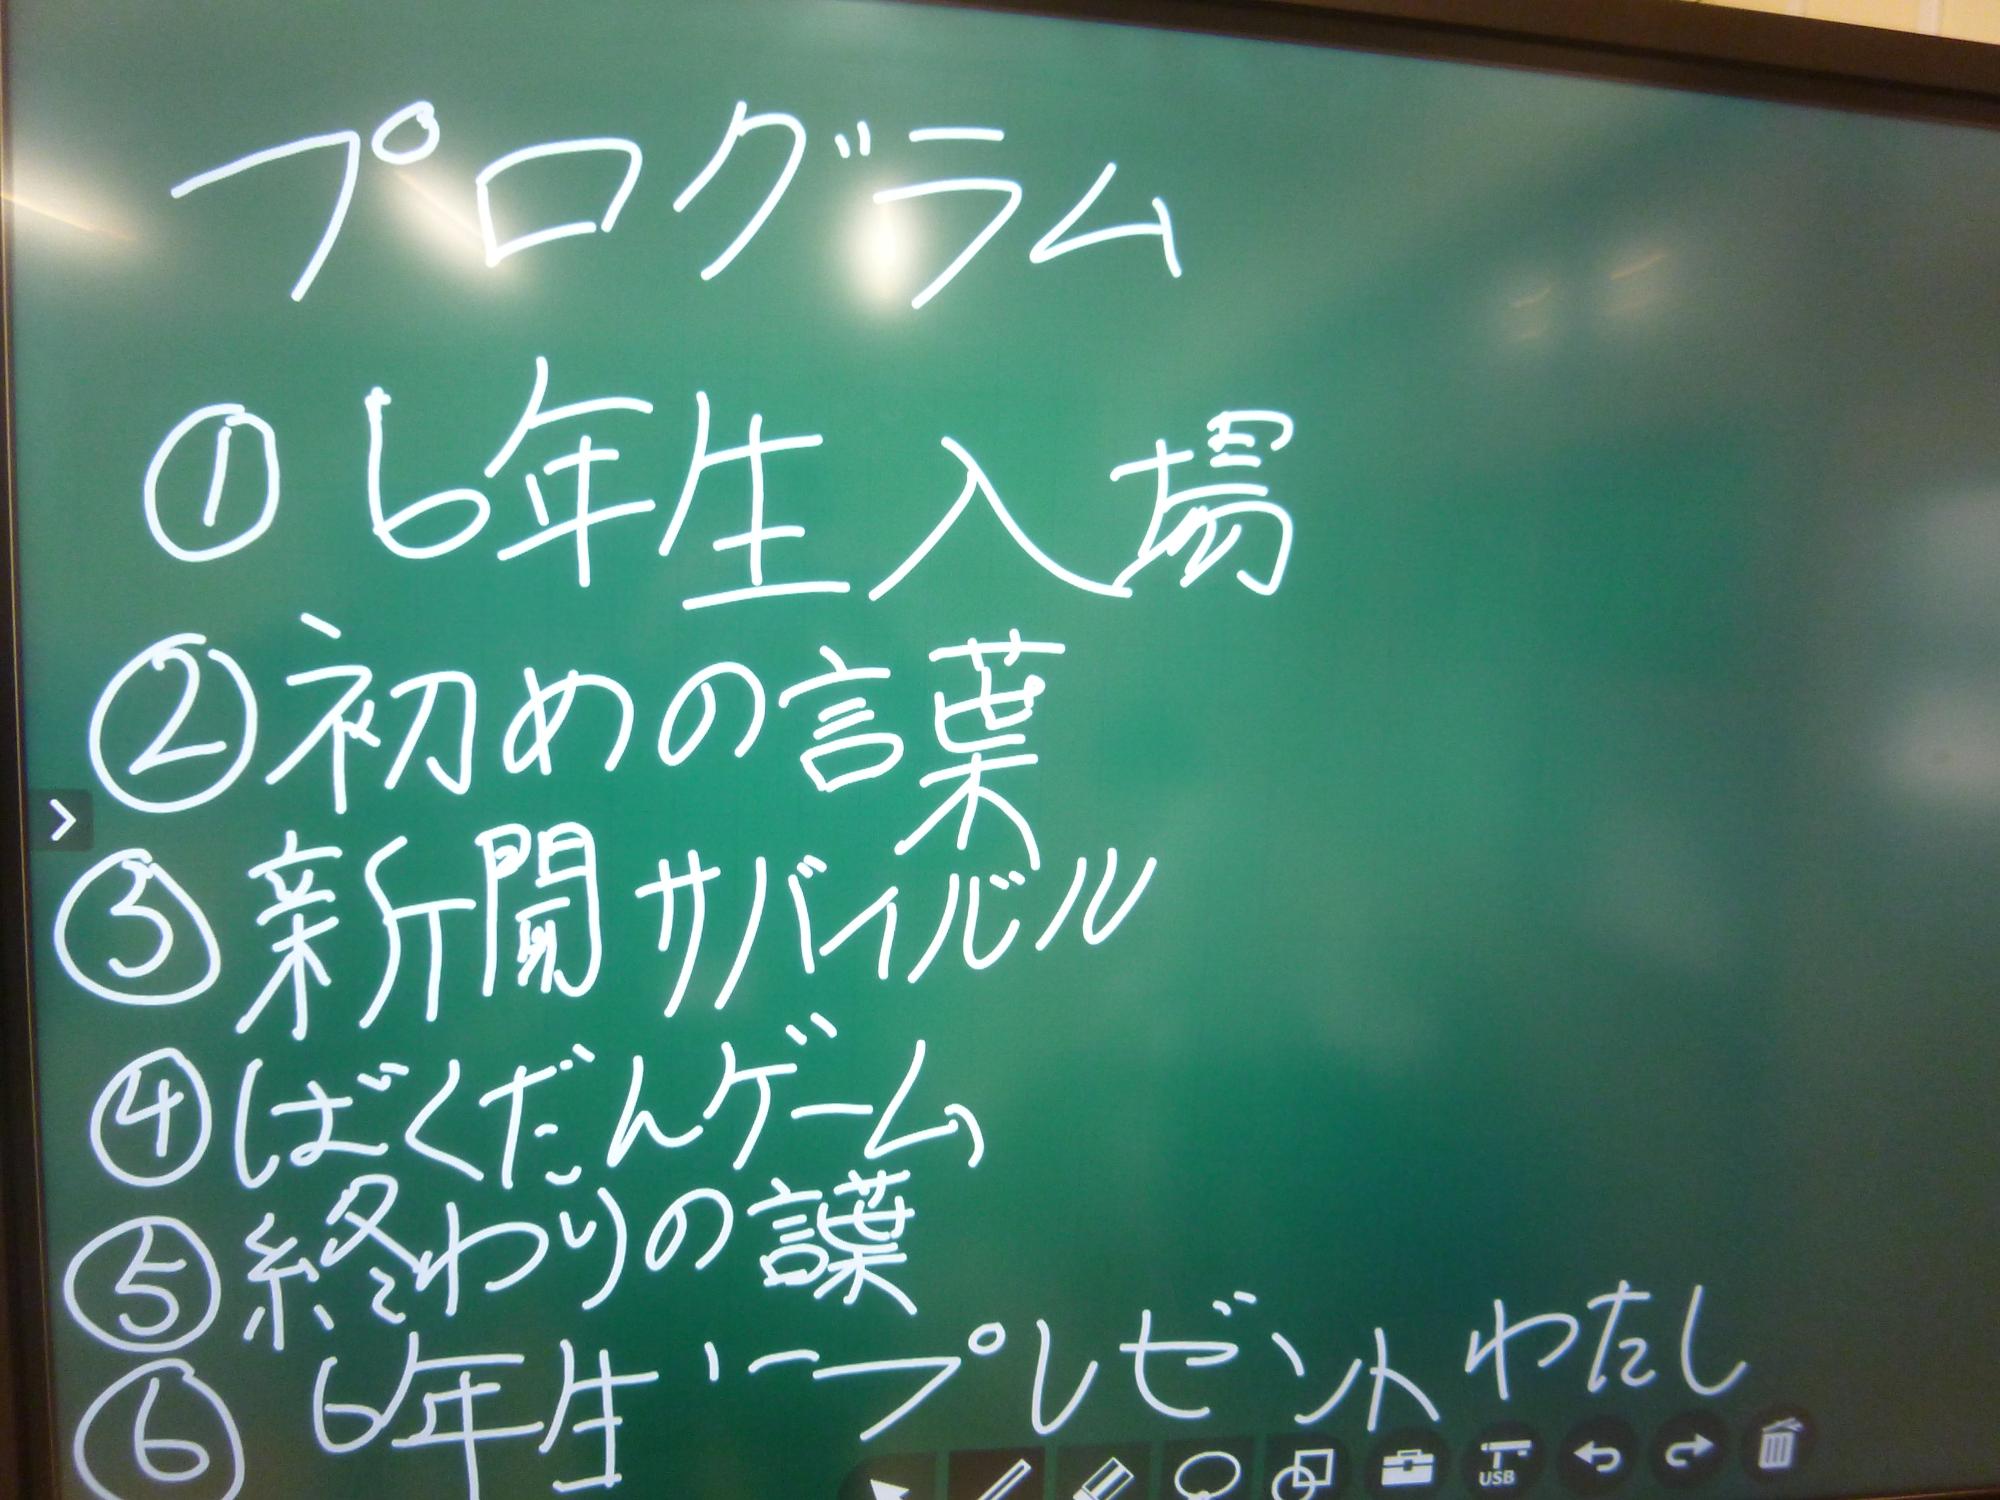 プログラム
① 6年生 入場
② 初めの言葉
③ 新聞サバイバル
④ ばくだんゲーム
⑤ 終わりの言葉
⑥ 6年生にプレゼントわたし
USB